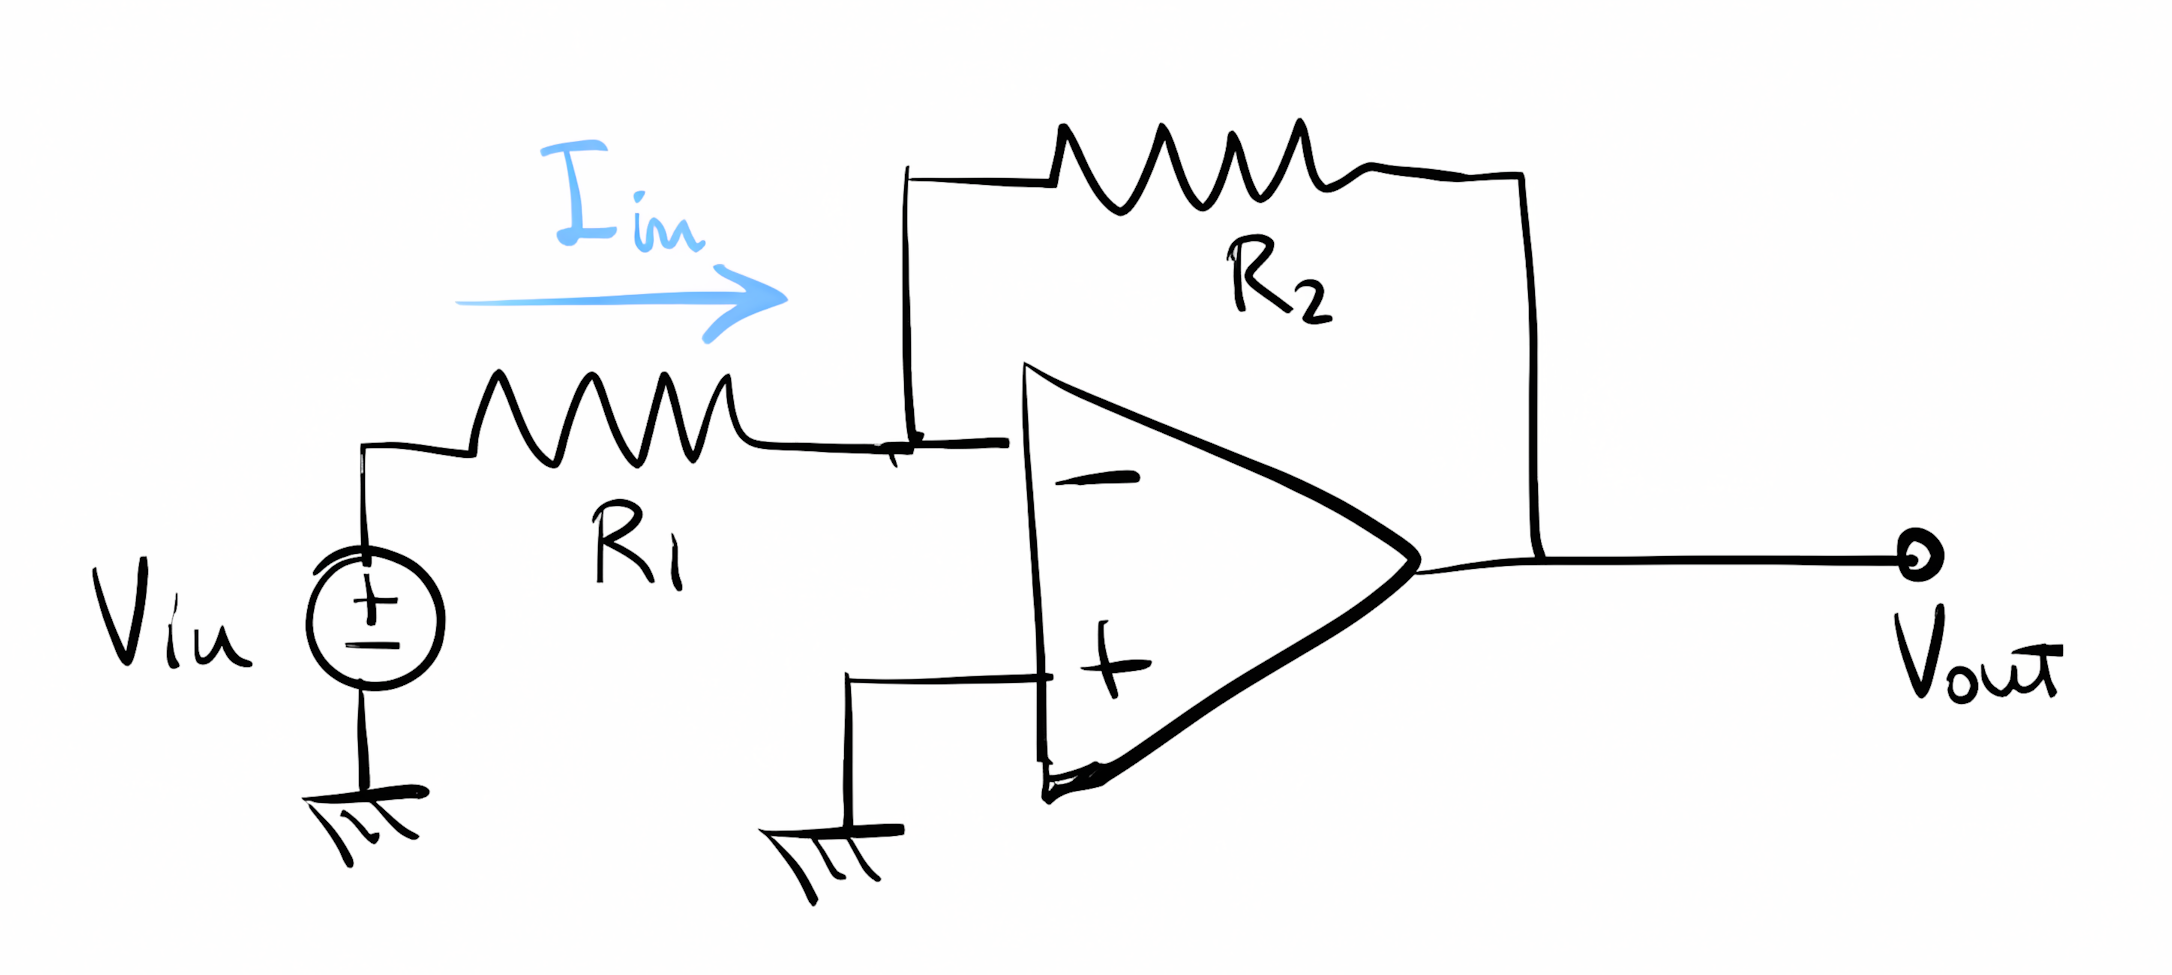 Iin
R2
R1
Vin
+
−
−
+
Vout